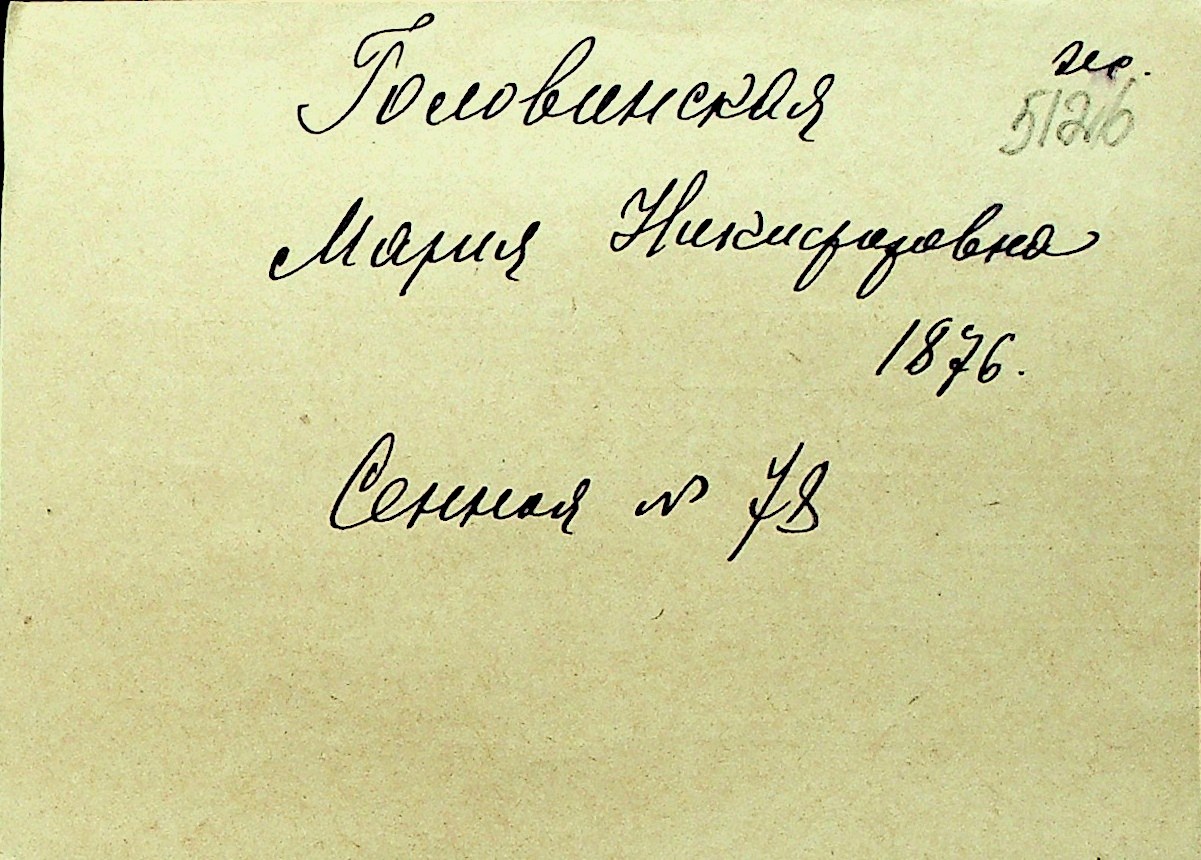 Головинская
5126
Мария Никифоровна
1876.
Сенная № 78